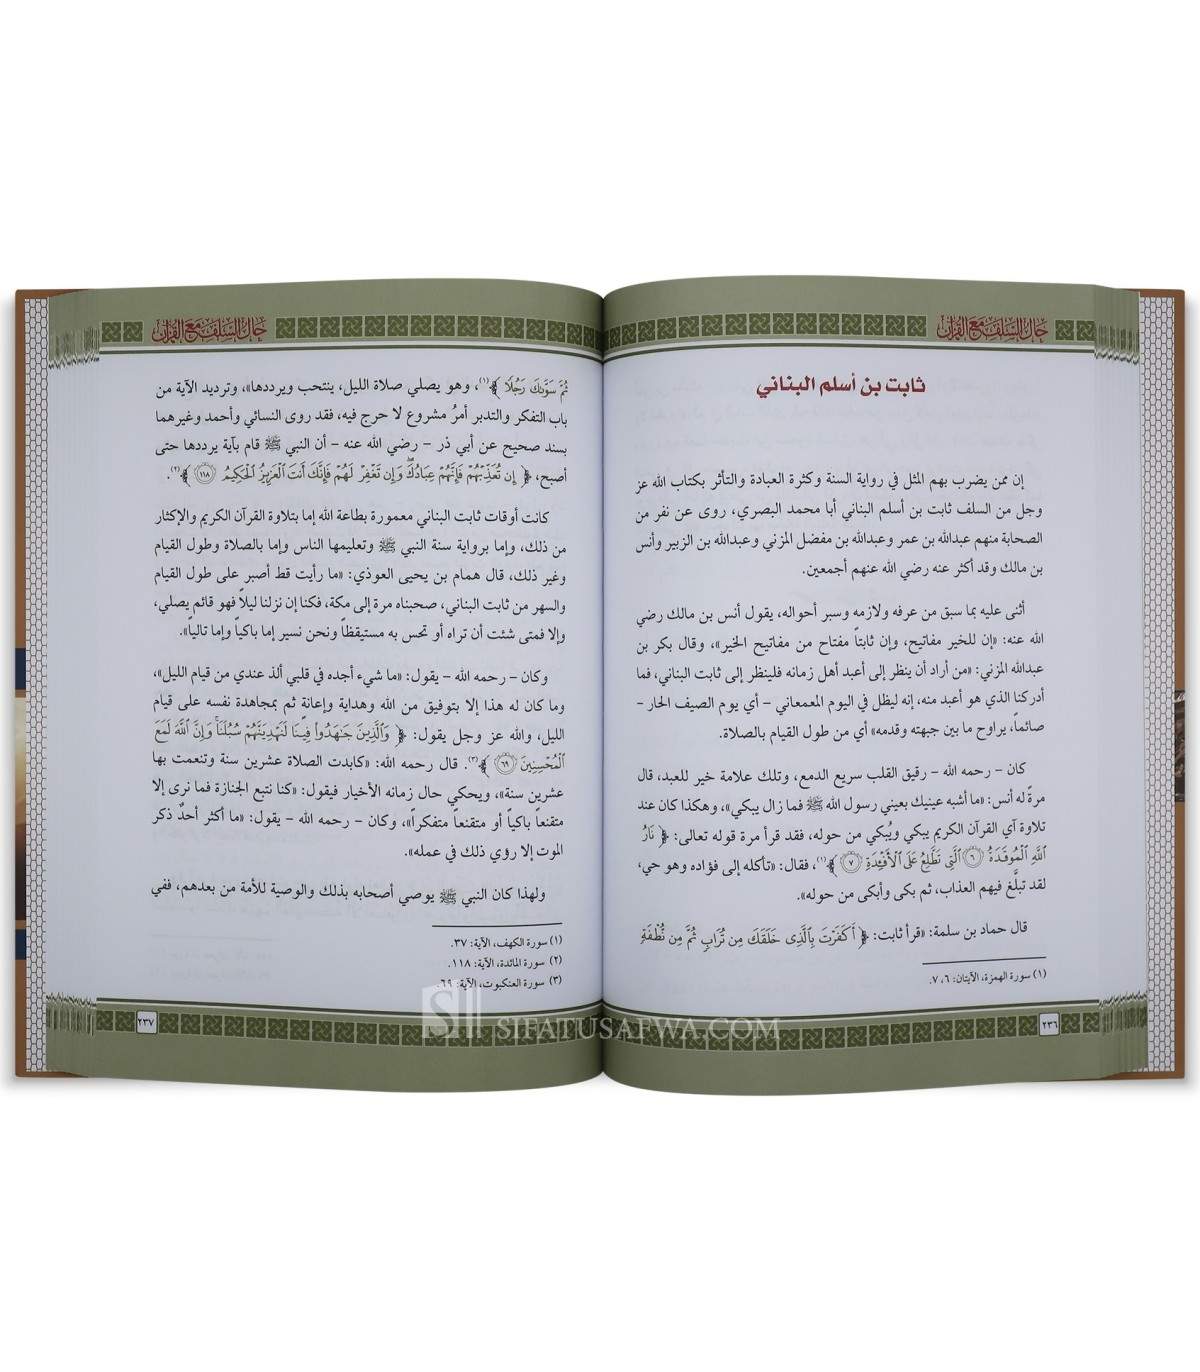 حال السلف مع القرآن
ثابت بن أسلم البناني
إن ممن يضرب بهم المثل في رواية السنة وكثرة العبادة والتأثر بكتاب الله عز
وجل من السلف ثابت بن أسلم البناني أبا محمد البصري، روى عن نفر من
الصحابة منهم عبدالله بن عمر وعبدالله بن مفضل المزني وعبدالله بن الزبير وأنس
بن مالك وقد أكثر عنه رضي الله عنهم أجمعين.
أثنى عليه بما سبق من عرفه ولازمه وسبر أحواله، يقول أنس بن مالك رضي
الله عنه: «إن للخير مفاتيح، وإن ثابتاً مفتاح من مفاتيح الخير»، وقال بكر بن
عبدالله المزني: «من أراد أن ينظر إلى أعبد أهل زمانه فلينظر إلى ثابت البناني، فما
أدركنا الذي هو أعبد منه، إنه ليظل في اليوم المعمعاني – أي يوم الصيف الحار –
صائماً، يراوح ما بين جبهته وقدمه» أي من طول القيام بالصلاة.
كان – رحمه الله – رقيق القلب سريع الدمع، وتلك علامة خير للعبد، قال
مرةً له أنس: «ما أشبه عينيك بعيني رسول الله ﷺ فما زال يبكي»، وهكذا كان عند
تلاوة آي القرآن الكريم يبكي ويُبكي من حوله، فقد قرأ مرة قوله تعالى: ﴿ نَارُ
ٱللَّهِ ٱلْمُوقَدَةُ ۝٦ ٱلَّتِى تَطَّلِعُ عَلَى ٱلْأَفْـِٔدَةِ ۝٧ ﴾(١)، فقال: «تأكله إلى فؤاده وهو حي،
لقد تبلَّغ فيهم العذاب، ثم بكى وأبكى من حوله».
قال حماد بن سلمة: «قرأ ثابت: ﴿ أَكَفَرْتَ بِٱلَّذِى خَلَقَكَ مِن تُرَابٍ ثُمَّ مِن نُّطْفَةٍ
(١) سورة الهمزة، الآيتان: ٦، ٧.
٢٣٦
حال السلف مع القرآن
ثُمَّ سَوَّىٰكَ رَجُلًا ﴾(١)، وهو يصلي صلاة الليل، ينتحب ويرددها»، وترديد الآية من
باب التفكر والتدبر أمرٌ مشروع لا حرج فيه، فقد روى النسائي وأحمد وغيرهما
بسند صحيح عن أبي ذر – رضي الله عنه – أن النبي ﷺ قام بآية يرددها حتى
أصبح، ﴿ إِن تُعَذِّبْهُمْ فَإِنَّهُمْ عِبَادُكَ ۖ وَإِن تَغْفِرْ لَهُمْ فَإِنَّكَ أَنتَ ٱلْعَزِيزُ ٱلْحَكِيمُ ۝١١٨ ﴾(٢).
كانت أوقات ثابت البناني معمورة بطاعة الله إما بتلاوة القرآن الكريم والإكثار
من ذلك، وإما برواية سنة النبي ﷺ وتعليمها الناس وإما بالصلاة وطول القيام
وغير ذلك، قال همام بن يحيى العوذي: «ما رأيت قط أصبر على طول القيام
والسهر من ثابت البناني، صحبناه مرة إلى مكة، فكنا إن نزلنا ليلاً فهو قائم يصلي،
وإلا فمتى شئت أن تراه أو تحس به مستيقظاً ونحن نسير إما باكياً وإما تالياً».
وكان – رحمه الله – يقول: «ما شيء أجده في قلبي ألذ عندي من قيام الليل»،
وما كان له هذا إلا بتوفيق من الله وهداية وإعانةٍ ثم بمجاهدة نفسه على قيام
الليل، والله عز وجل يقول: ﴿ وَٱلَّذِينَ جَـٰهَدُوا۟ فِينَا لَنَهْدِيَنَّهُمْ سُبُلَنَا ۚ وَإِنَّ ٱللَّهَ لَمَعَ
ٱلْمُحْسِنِينَ ۝٦٩ ﴾(٣). قال رحمه الله: «كابدت الصلاة عشرين سنة وتنعمت بها
عشرين سنة»، ويحكي حال زمانه الأخيار فيقول: «كنا نتبع الجنازة فما نرى إلا
متقنعاً باكياً أو متقنعاً متفكراً»، وكان – رحمه الله – يقول: «ما أكثر أحدٌ ذكر
الموت إلا رؤي ذلك في عمله».
ولهذا كان النبي ﷺ يوصي أصحابه بذلك والوصية للأمة من بعدهم، ففي
(١) سورة الكهف، الآية: ٣٧.
(٢) سورة المائدة، الآية: ١١٨.
(٣) سورة العنكبوت، الآية: ٦٩.
٢٣٧
SIFATUSAFWA.COM